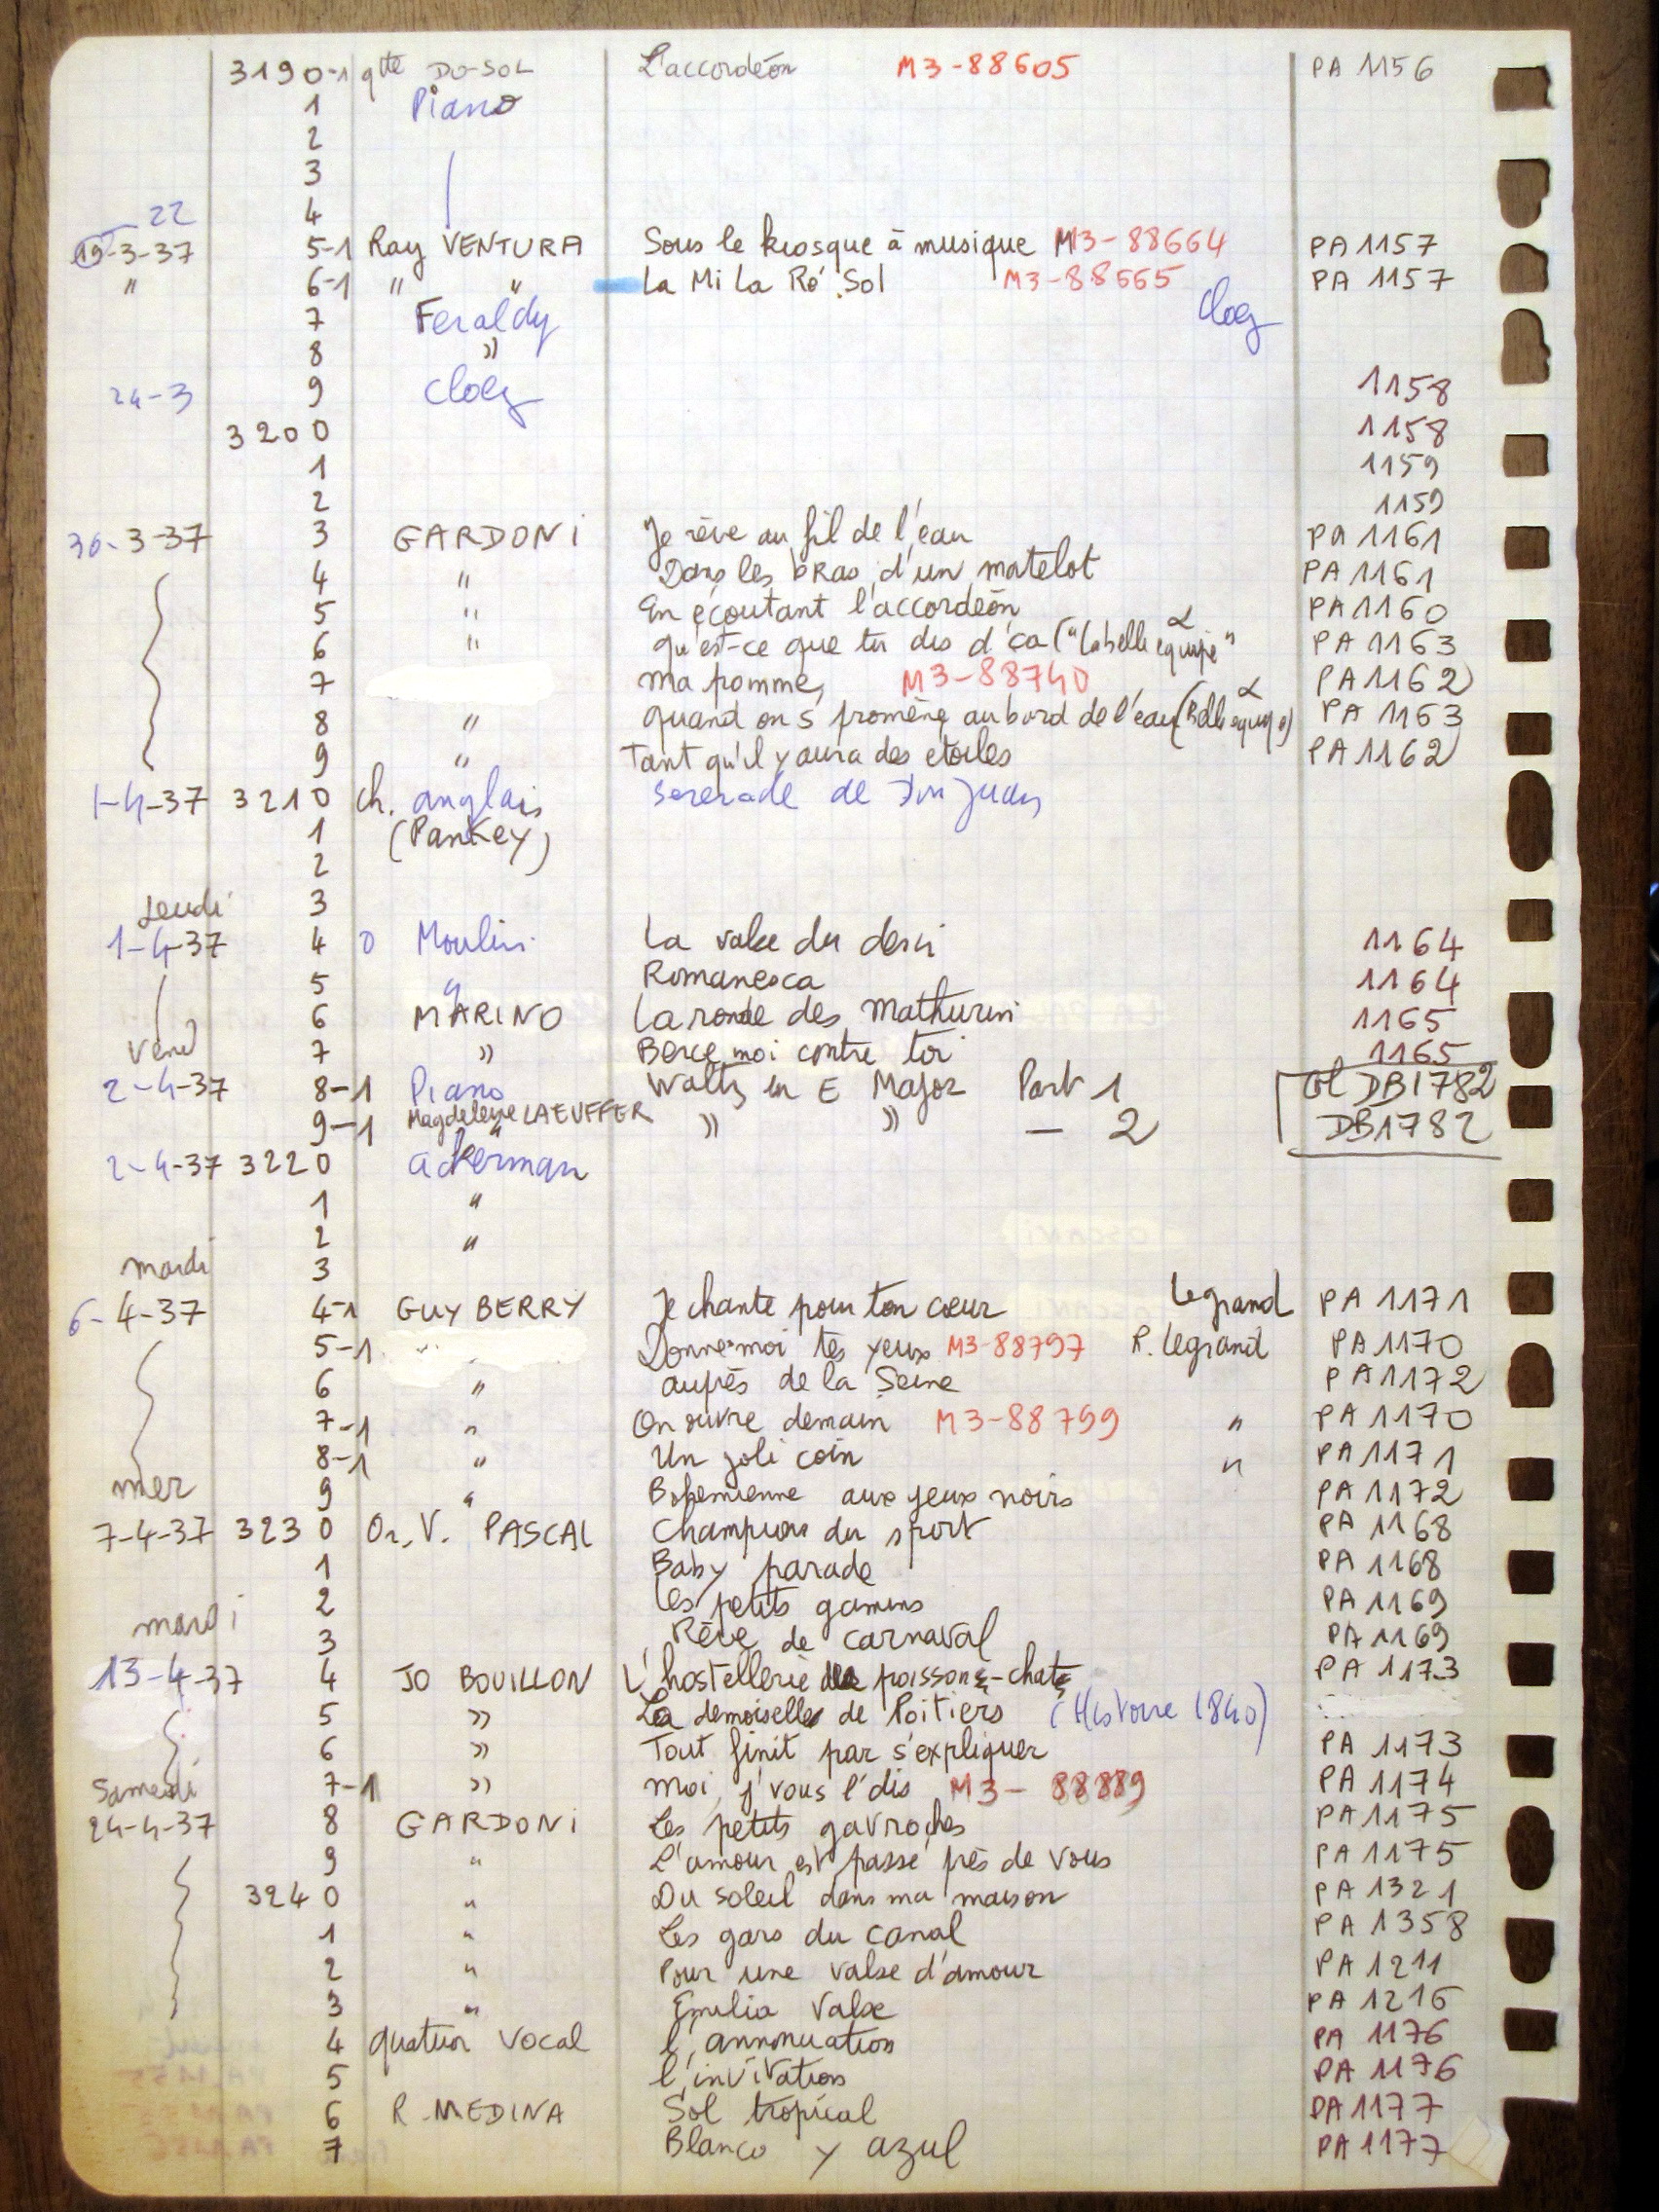 3190-1 qtte DO-SOL L'accordéon M3-88605 PA 1156
1 Piano
2
3
22
4
19-3-37 5-1 Ray VENTURA Sous le kiosque à musique M3-88664 PA 1157
" 6-1 " " La Mi La Ré Sol M3-88665 PA 1157
7 Feraldy Cloëz
8 "
24-3 9 Cloëz 1158
3200 1158
1 1159
2 1159
30-3-37 3 GARDONI Je rêve au fil de l'eau PA 1161
4 " Dans les bras d'un matelot PA 1161
5 " En écoutant l'accordéon PA 1160
6 " qu'est-ce que tu dis d'ça ("la belle équipe" PA 1163
7 ma pomme, M3-88740 PA 1162
8 " quand on s'promène au bord de l'eau (Belle equipe) PA 1163
9 " Tant qu'il y aura des étoiles PA 1162
1-4-37 3210 ch. anglais Serenade de Don Juan
1 (PanKey)
2
Jeudi 3
1-4-37 4 o Moulin La valse du 1164
5 " Romanesca 1164
6 MARINO La ronde des Mathurin 1165
Vend 7 " Berce moi contre toi 1165
2-4-37 8-1 Piano Waltz in E Major Part 1 Col DB1782
9-1 Magdeleine LAEUFFER " " — 2 DB1782
2-4-37 3220 ackerman
1 "
2 "
mardi 3
6-4-37 4-1 GUY BERRY Je chante pour ton cœur Legrand PA 1171
5-1 " Donne-moi tes yeux M3-88797 R. Legrand PA 1170
6 " auprès de la Seine PA 1172
7-1 " On ouvre demain M3-88799 " PA 1170
8-1 " Un joli coin " PA 1171
mer 9 " Bohemienne aux yeux noirs PA 1172
7-4-37 3230 Or. V. PASCAL Champion du sport PA 1168
1 Baby parade PA 1168
2 Les petits gamins PA 1169
mardi 3 Rêve de carnaval PA 1169
13-4-37 4 JO BOUILLON L'hostellerie des poissons-chats PA 1173
5 " La demoiselle de Poitiers (Histoire 1840)
6 " Tout finit par s'expliquer PA 1173
Samedi 7-1 " moi, j'vous l'dis M3-88889 PA 1174
24-4-37 8 GARDONI Les petits gavroches PA 1175
9 " L'amour est passé près de vous PA 1175
3240 " Du soleil dans ma maison PA 1321
1 " Les gars du canal PA 1358
2 " Pour une valse d'amour PA 1211
3 " Emilia Valse PA 1216
4 quatuor vocal l'annonciation PA 1176
5 l'invitation PA 1176
6 R. MEDINA Sol tropical PA 1177
7 Blanco y azul PA 1177